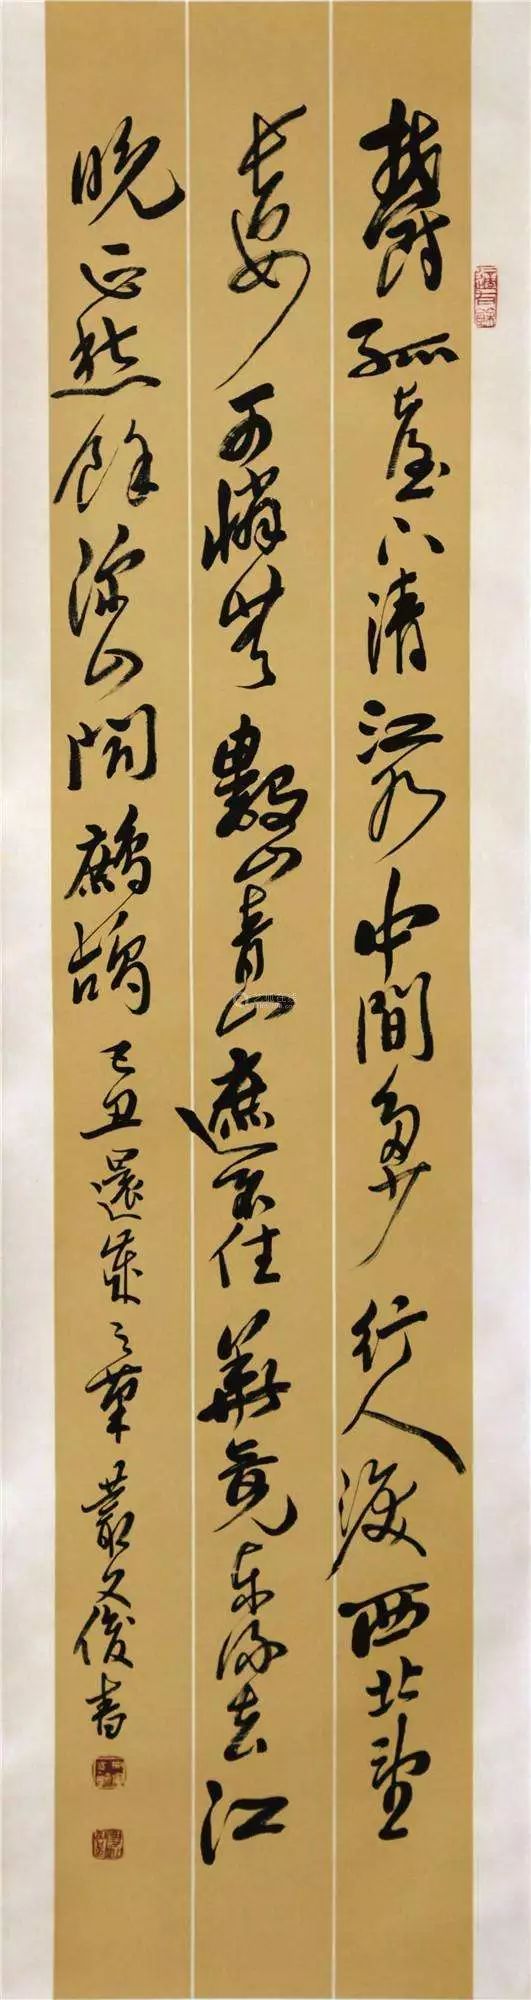 鬱孤臺下清江水中間多少行人淚西北望
長安可憐無數山青山遮不住畢竟東流去江
晚正愁餘深山聞鷓鴣 己丑 之 叢文俊書